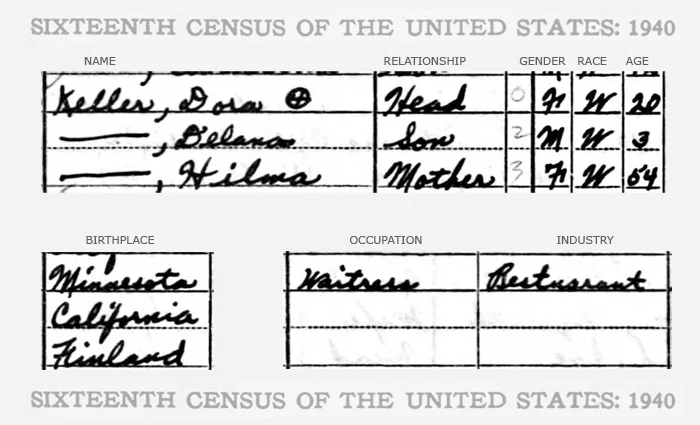 SIXTEENTH CENSUS OF THE UNITED STATES: 1940
NAME RELATIONSHIP GENDER RACE AGE
Keller, Dora ⊕ Head 0 F W 20
——, Delano Son 2 M W 3
——, Hilma Mother 3 F W 54
BIRTHPLACE OCCUPATION INDUSTRY
Minnesota Waitress Resturarant
California
Finland
SIXTEENTH CENSUS OF THE UNITED STATES: 1940